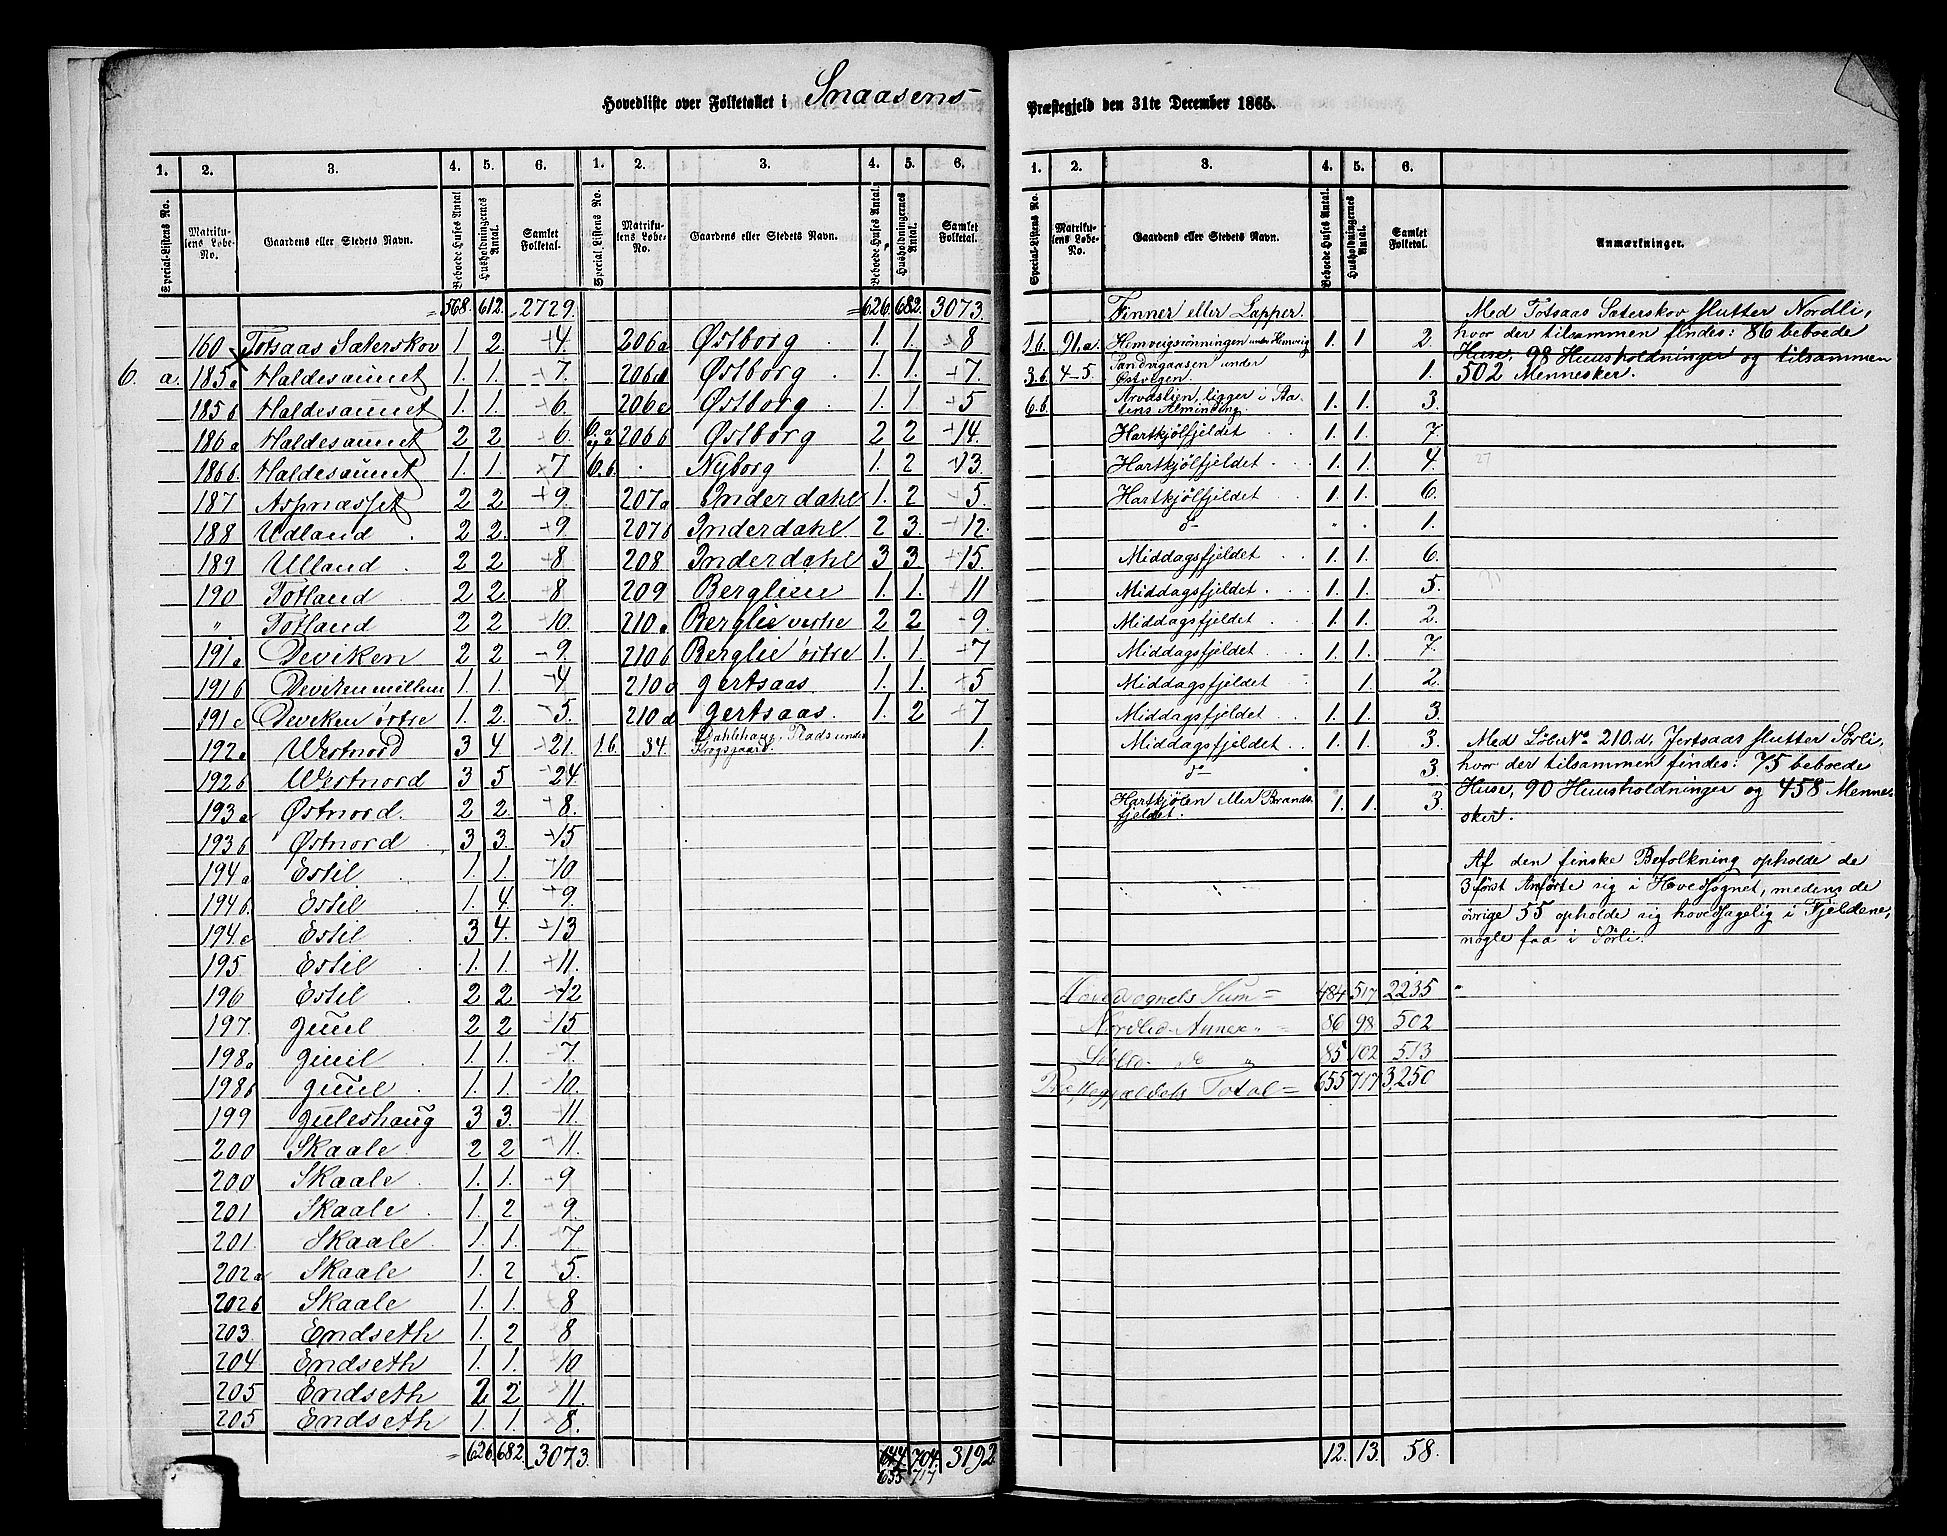 Hovedliste over Folketallet i Snaasens Præstegjeld den 31te December 1865.
1. 2. 3. 4. 5. 6. 1. 2. 3. 4. 5. 6.
Special-Listens No. Matrikulens Løbe-No. Gaardens eller Stedets Navn. Beboede Huses Antal Husholdningernes Antal. Samlet Folketal. Special-Listens No. Matrikulens Løbe-No. Gaardens eller Stedets Navn. Beboede Huses Antal. Husholdningernes Antal. Samlet Folketal.
= 568. 612. 2729. = 626. 682. 3073.
160 Totsaas Sæterskov 1. 2. 4. 206a Østborg 1. 1. 8
6. a. 185a Haldesaunet 1. 1. 7. 206d Østborg 1. 1. 7.
185b Haldesaunet 1. 1. 6. 206c Østborg 1. 1 5
186a Haldesaunet 2 2 6. 206b Østborg 2 2 14.
186b. Haldesaunet 1. 1. 7 6.b. Nyborg 1. 2 13.
187 Aspnæsset 2 2 9. 207a Inderdahl 1. 2 5
188 Udland 2 2. 9. 207b Inderdahl 2 3. 12.
189 Ulland 2 2 8 208 Inderdahl 3 3. 15.
190 Totland 2 2 8 209 Berglien 1. 1. 11
" Totland 2 2 10. 210a Berglie vestre 2 2 9.
191a Deviken 2 2 9. 210b Berglie østre 1. 1. 7
191b Deviken mellem 1. 1. 4 210c Gertsaas 1. 1. 5
191c Deviken østre 1. 2 5. 210d Gertsaas. 1. 2 7
192a Westnord 3 4. 21. 1.b. 34. Dahlhaug, Plads under Krogsgaard. 1.
192b Westnord 3 5 24.
193a Østnord. 2 2. 8.
193b Østnord 3 3. 15
194a Estil 1. 1. 10
194b. Estil 1. 4. 9.
194.c Estil 3 4. 13
195 Estil 1. 1. 11.
196 Estil 2 2 12
197. Juul 2 2 15.
198a Juul 1. 1. 7.
198b Juul 1. 1. 10.
199 Juleshaug 3 3. 11.
200 Skaale 2 2 11.
200 Skaale 1. 1. 9
201 Skaale 1. 2 9.
201. Skaale 1. 1. 7
202a Skaale 1. 2 5.
202b Skaale 1. 1. 8
203. Endseth 1. 2 8
204 Endseth 1. 1. 10
205 Endseth 2 2 11.
205 Endseth 1. 1. 8.
= 626. 682. 3073. 647. 704. 3192.
655 717
1. 2. 3. 4. 5. 6.
Special-Listens No. Matrikulens Løbe-No. Gaardens eller Stedets Navn. Beboede Huses Antal. Husholdningernes Antal. Samlet Folketal. Anmærkninger.
Finner eller Lapper.
1.b. 91.a. Hemveigsrønningen under Hemveig 1. 1. 2.
3.b. 4-5. under Østvegen. 1.
6.b. Arvaslien, ligger i Aalens Alminding. 1. 1. 3.
Hartkjølfjeldet 1. 1. 7.
Hartkjølfjeldet 1. 1. 4.
Hartkjølfjeldet 1. 1. 6.
do " " 1.
Middagsfjeldet 1. 1. 6.
Middagsfjeldet. 1. 1. 5.
Middagsfjeldet 1. 1. 2.
Middagsfjeldet 1. 1. 7.
Middagsfjeldet 1. 2.
Middagsfjeldet 1. 1. 3.
Middagsfjeldet 1. 1. 3.
do 3.
Hartkjølen eller Brandsfjeldet. 1. 1. 3.
Hovedsognets Sum = 484 517 2235
Nordlid Annex " = 86 98 502
Sørlid do " 85 102 513
Præstegjældets Total = 655 717 3,250
12. 13. 58.
Med Totsaas Sæterskov slutter Nordli,
hvor der tilsammen findes: 86 beboede
Huse, 98 Huusholdninger og tilsammen
502 Mennesker.
27
Med Løbe No 210.d. Jertsaas slutter Sørli,
hvor der tilsammen findes: 75 beboede
Huse, 90 Huusholdninger og 458 Menne-
sker.
Af den finske Befolkning opholde de
3 først Anførte sig i Hovedsognet, medens de
øvrige 55 opholde sig hovedsagelig i Fjeldene,
nogle faa i Sørli.